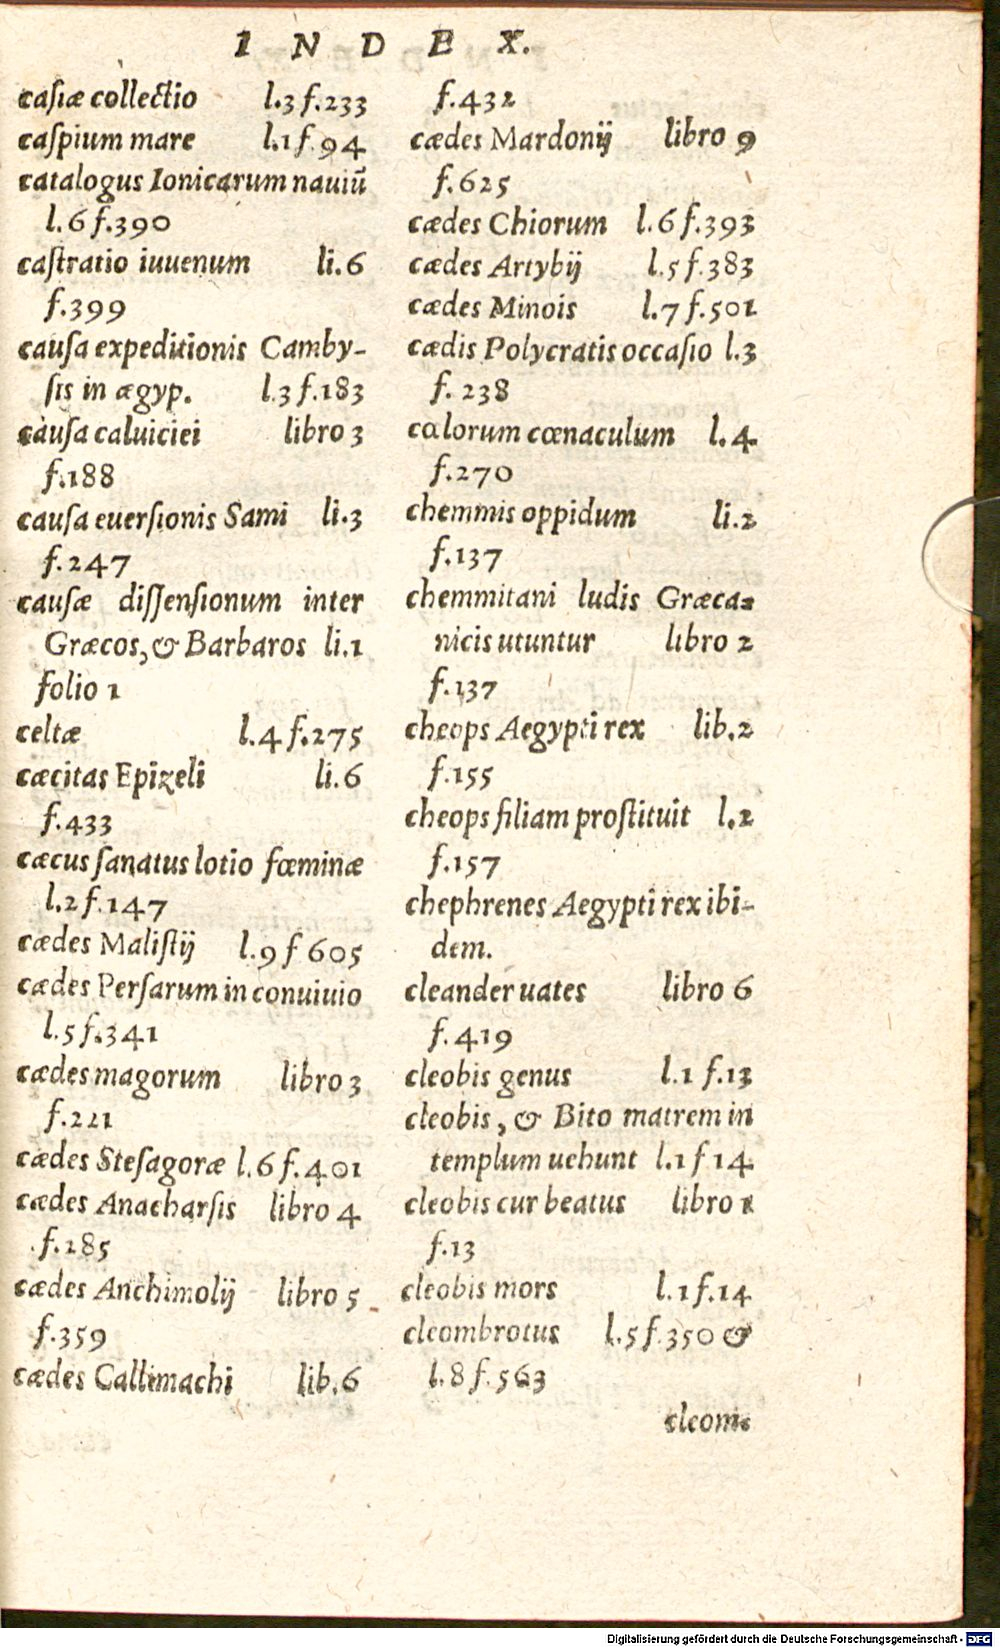 INDEX.
casiæ collectio l.3 f.233
caſpium mare l.1 f.94
catalogus Ionicarum nauiũ
l.6 f.390
caſtratio iuuenum li.6
f.399
cauſa expeditionis Camby-
ſis in ægyp. l.3 f.183
cauſa caluiciei libro 3
f.188
cauſa euerſionis Sami li.3
f.247
cauſæ diſſenſionum inter
Græcos, & Barbaros li.1
folio 1
celtæ l.4 f.275
cæcitas Epizeli li.6
f.433
cæcus ſanatus lotio fœminæ
l.2 f.147
cædes Maliſtij l.9 f 605
cædes Perſarum in conuiuio
l.5 f.341
cædes magorum libro 3
f.221
cædes Steſagoræ l.6 f.401
cædes Anacharſis libro 4
f.285
cædes Anchimolij libro 5
f.359
cædes Callimachi lib.6
f.432
cædes Mardonij libro 9
f.625
cædes Chiorum l.6 f.393
cædes Artybij l.5 f.383
cædes Minois l.7 f.501
cædis Polycratis occaſio l.3
f. 238
cœlorum cœnaculum l.4
f.270
chemmis oppidum li.2
f.137
chemmitani ludis Græca=
nicis utuntur libro 2
f.137
cheops Aegypti rex lib.2
f.155
cheops filiam proſtituit l.2
f.157
chephrenes Aegypti rex ibi-
dem.
cleander uates libro 6
f.419
cleobis genus l.1 f.13
cleobis, & Bito matrem in
templum uehunt l.1 f 14
cleobis cur beatus libro 1
f.13
cleobis mors l.1 f.14
cleombrotus l.5 f.350 &
l.8 f.563
cleom=
Digitalisierung gefördert durch die Deutsche Forschungsgemeinschaft - DFG